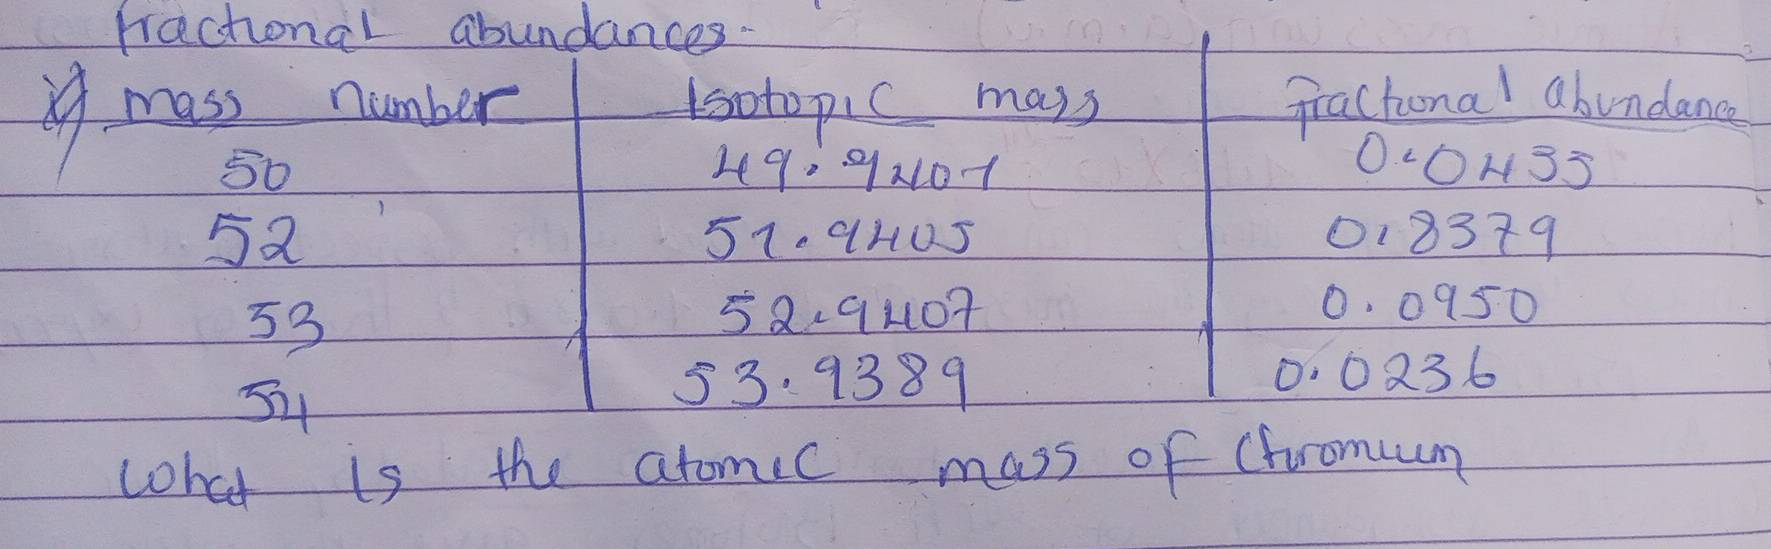 fractional abundances.
mass number Isotopic mass Fractional abundance
50 49.9401 0.0435
52 51.9405 0.8379
53 52.9407 0.0950
54 53.9389 0.0236
What is the atomic mass of Chromium